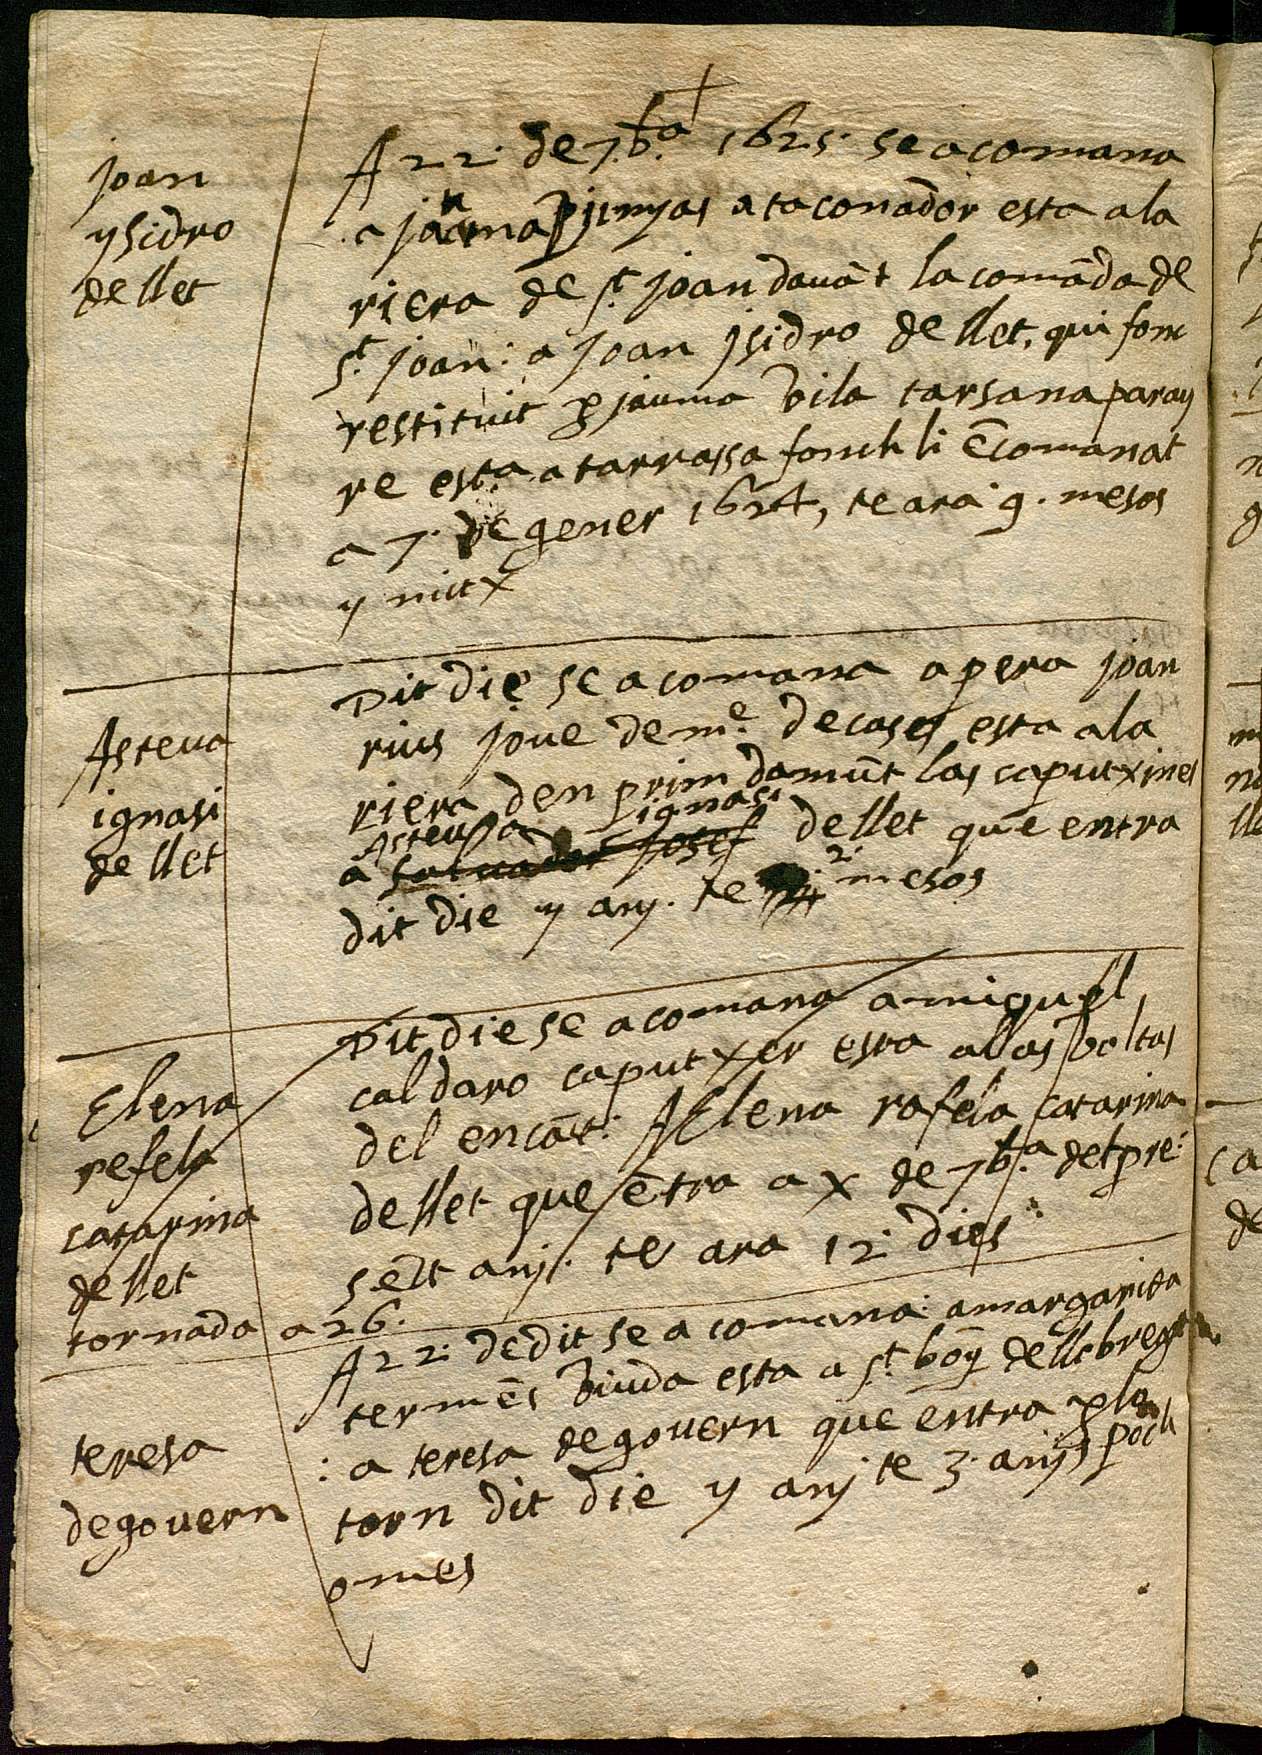 joan
ysidro
de llet
A 22. de 7b.ª 1625. se acomana
a jauma pinyas ataconador esta a la
riera de S.t joan davāt la comāda de
S.t joan: a joan jsidro de llet, qui fonc
restituit p jauma vila tarsana paray
re esta a tarrassa fonch li ēcomanat
a 7. de gener 1624, te ara 9. mesos
y mitx
Asteva
ignasi
de llet
Dit die se acomana a pera joan
rius jove de m.e de cases esta a la
riera den prim damūt las caputxines
Asteva ignasi
a salvador josef de llet que entra
dit die y any. te 2. mesos
Elena
refela
catarina
de llet
tornada a 26.
Dit die se acomana a miquel
caldaro caputxer esta a las voltas
del encāt: A Elena rafela catarina
de llet que ētra a x de 7b.ª det pre:
sēt any. te ara 12. dies
teresa
de govern
A 22. de dit se a comana: a margarida
termēs viuda esta a S.t boy de llobregat
: a teresa de govern que entra p lo
torn dit die y any te 3. anys poch
o mes